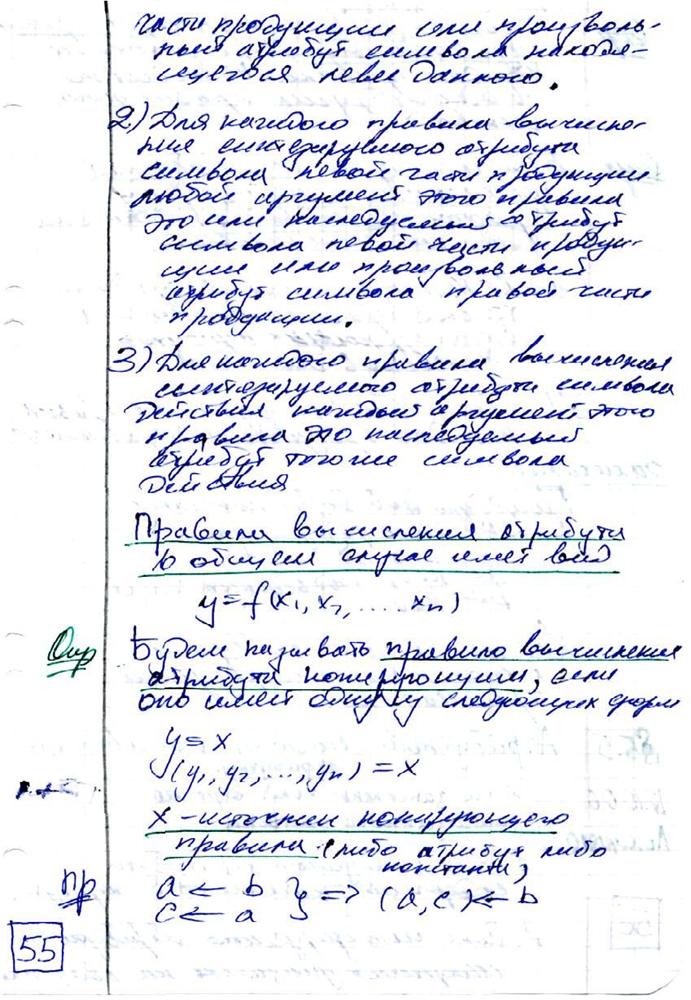 части продукции или произволь-
ный атрибут символа находя-
щегося левее данного.
2) Для каждого правила вычисле-
ния синтезируемого атрибута
символа левой части продукции
любой аргумент этого правила
это или наследуемый атрибут
символа левой части продук-
ции или произвольный
атрибут символа правой части
продукции.
3) Для каждого правила вычисления
синтезируемого атрибута символа
действия каждый аргумент этого
правила это наследуемый
атрибут того же символа
действия
Правила вычисления атрибута
в общем случае имеет вид
y = f(x₁, x₂, .... xₙ)
Опр Будем называть правило вычисления
атрибута копирующим, если
оно имеет одну из следующих форм
y = x
(y₁, y₂, ..., yₙ) = x
x - источник копирующего
правила (либо атрибут либо
константа)
Пр a ← b } => (a, c) ← b
c ← a
55